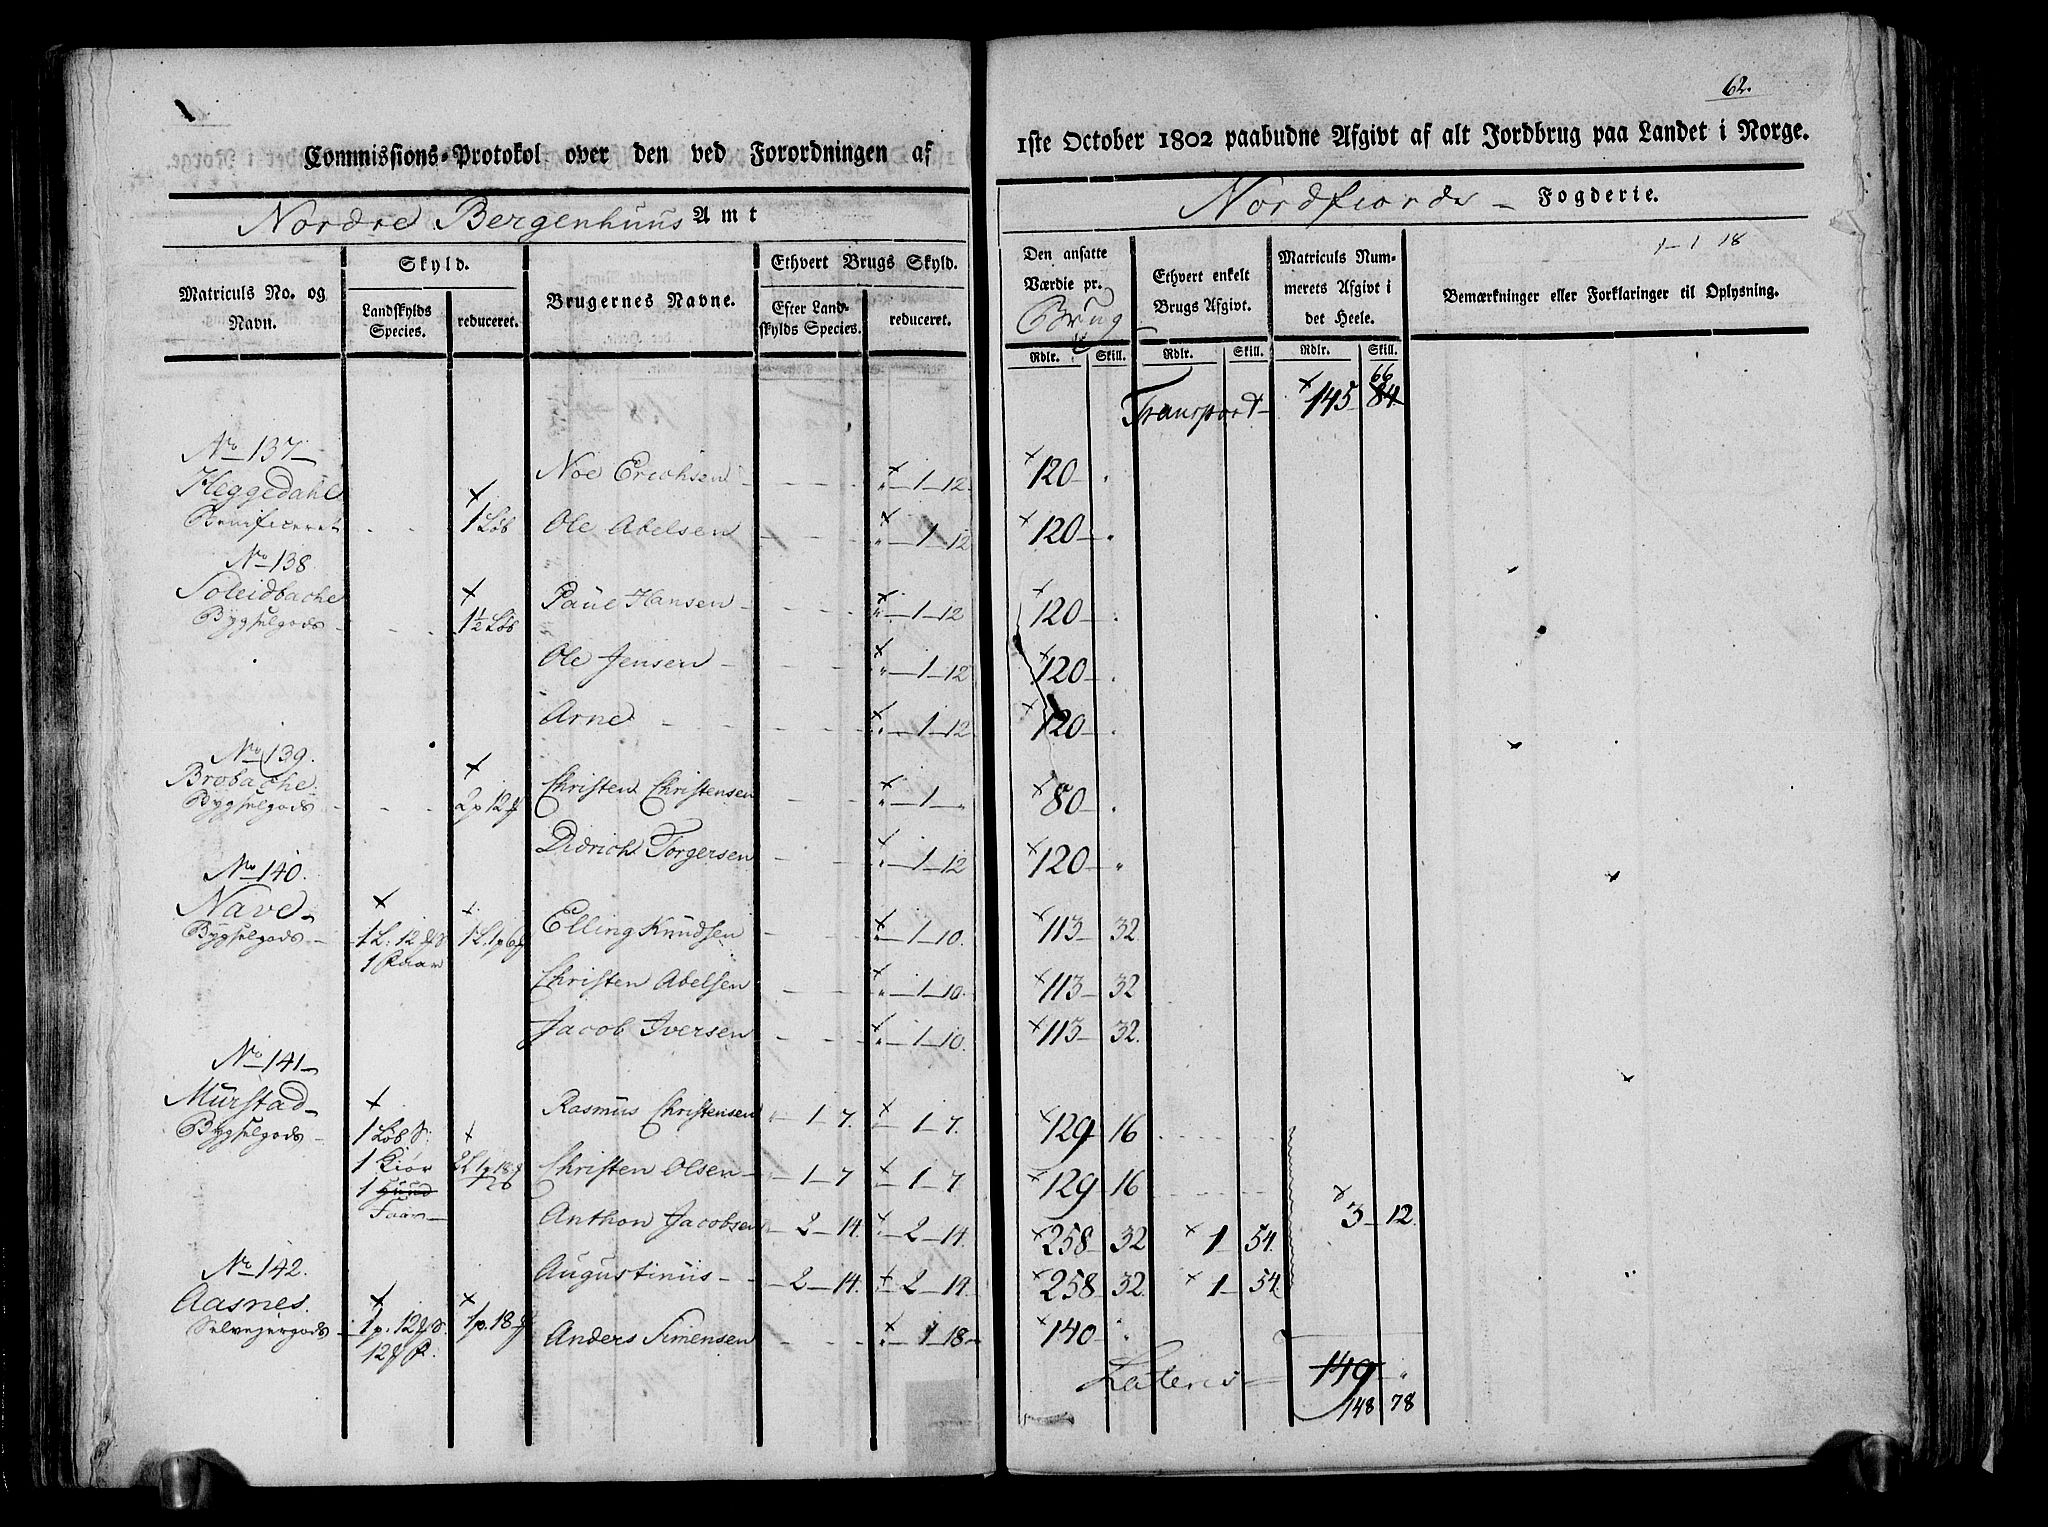 62.
Commissions-Protokol over den ved Forordningen af 1ste October 1802 paabudne Afgivt af alt Jordbrug paa Landet i Norge.
Nordre Bergenhuus Amt Nordfiords - Fogderie.
1-1 18
Matriculs No. og Navn. Skyld. Landskylds Species. reduceret. Brugernes Navne. Ethvert Brugs Skyld. Efter Landskylds Species. reduceret. Den ansatte Værdie pr. Brug Rdlr. Skill. Ethvert enkelt Brugs Afgivt. Rdlr. Skill. Matriculs Nummerets Afgivt i det Heele. Rdlr. Skill. Bemærkninger eller Forklaringer til Oplysning.
Transport - 145 84. 66
No 137
Heggedahl Noe Erichsen - 1 - 12 120 -
Benificeret 1 Løb Ole Abelsen 1 - 12 120 -
No 138.
Soleidbache Paul Hansen - 1 - 12 120 -
Bygselgods 1½ Løb
Ole Jensen - 1 - 12 120 -
Arne 1 - 12 120 -
No 139.
Brobache Christen Christensen 1 - 80 -
Bygselgods 2 p 12
Didrich Torgersen 1 - 12 120 -
No 140.
Nave - Elling Knudsen 1 - 10. 113 - 32.
Bygselgods 1 L. 12 S 1 L. 1 p 6
1 Christen Abelsen 1 - 10. 113 - 32
Jacob Iversen 1 - 10. 113 - 32.
No 141
Murstad - Rasmus Christensen 1 - 7. 1 - 7. 129 - 16
Bygselgods 1 Løb S.
1 Kiør 2 L 1 p 18 Christen Olsen - 1 - 7 1 - 7 129 - 16
1 Huud
Faar - Anthon Jacobsen 2 - 14. 2 - 14. 258 - 32 1 - 54. 3 - 12.
No 142. Augustinus - 2 - 14. 2 - 14. 258 - 32. 1 - 54.
Aasnes.
Selvejergods 1 p. 12 S. 1 p. 18 Anders Simensen 1 - 18 - 140 -
12
Lateris - 149 -
148 78